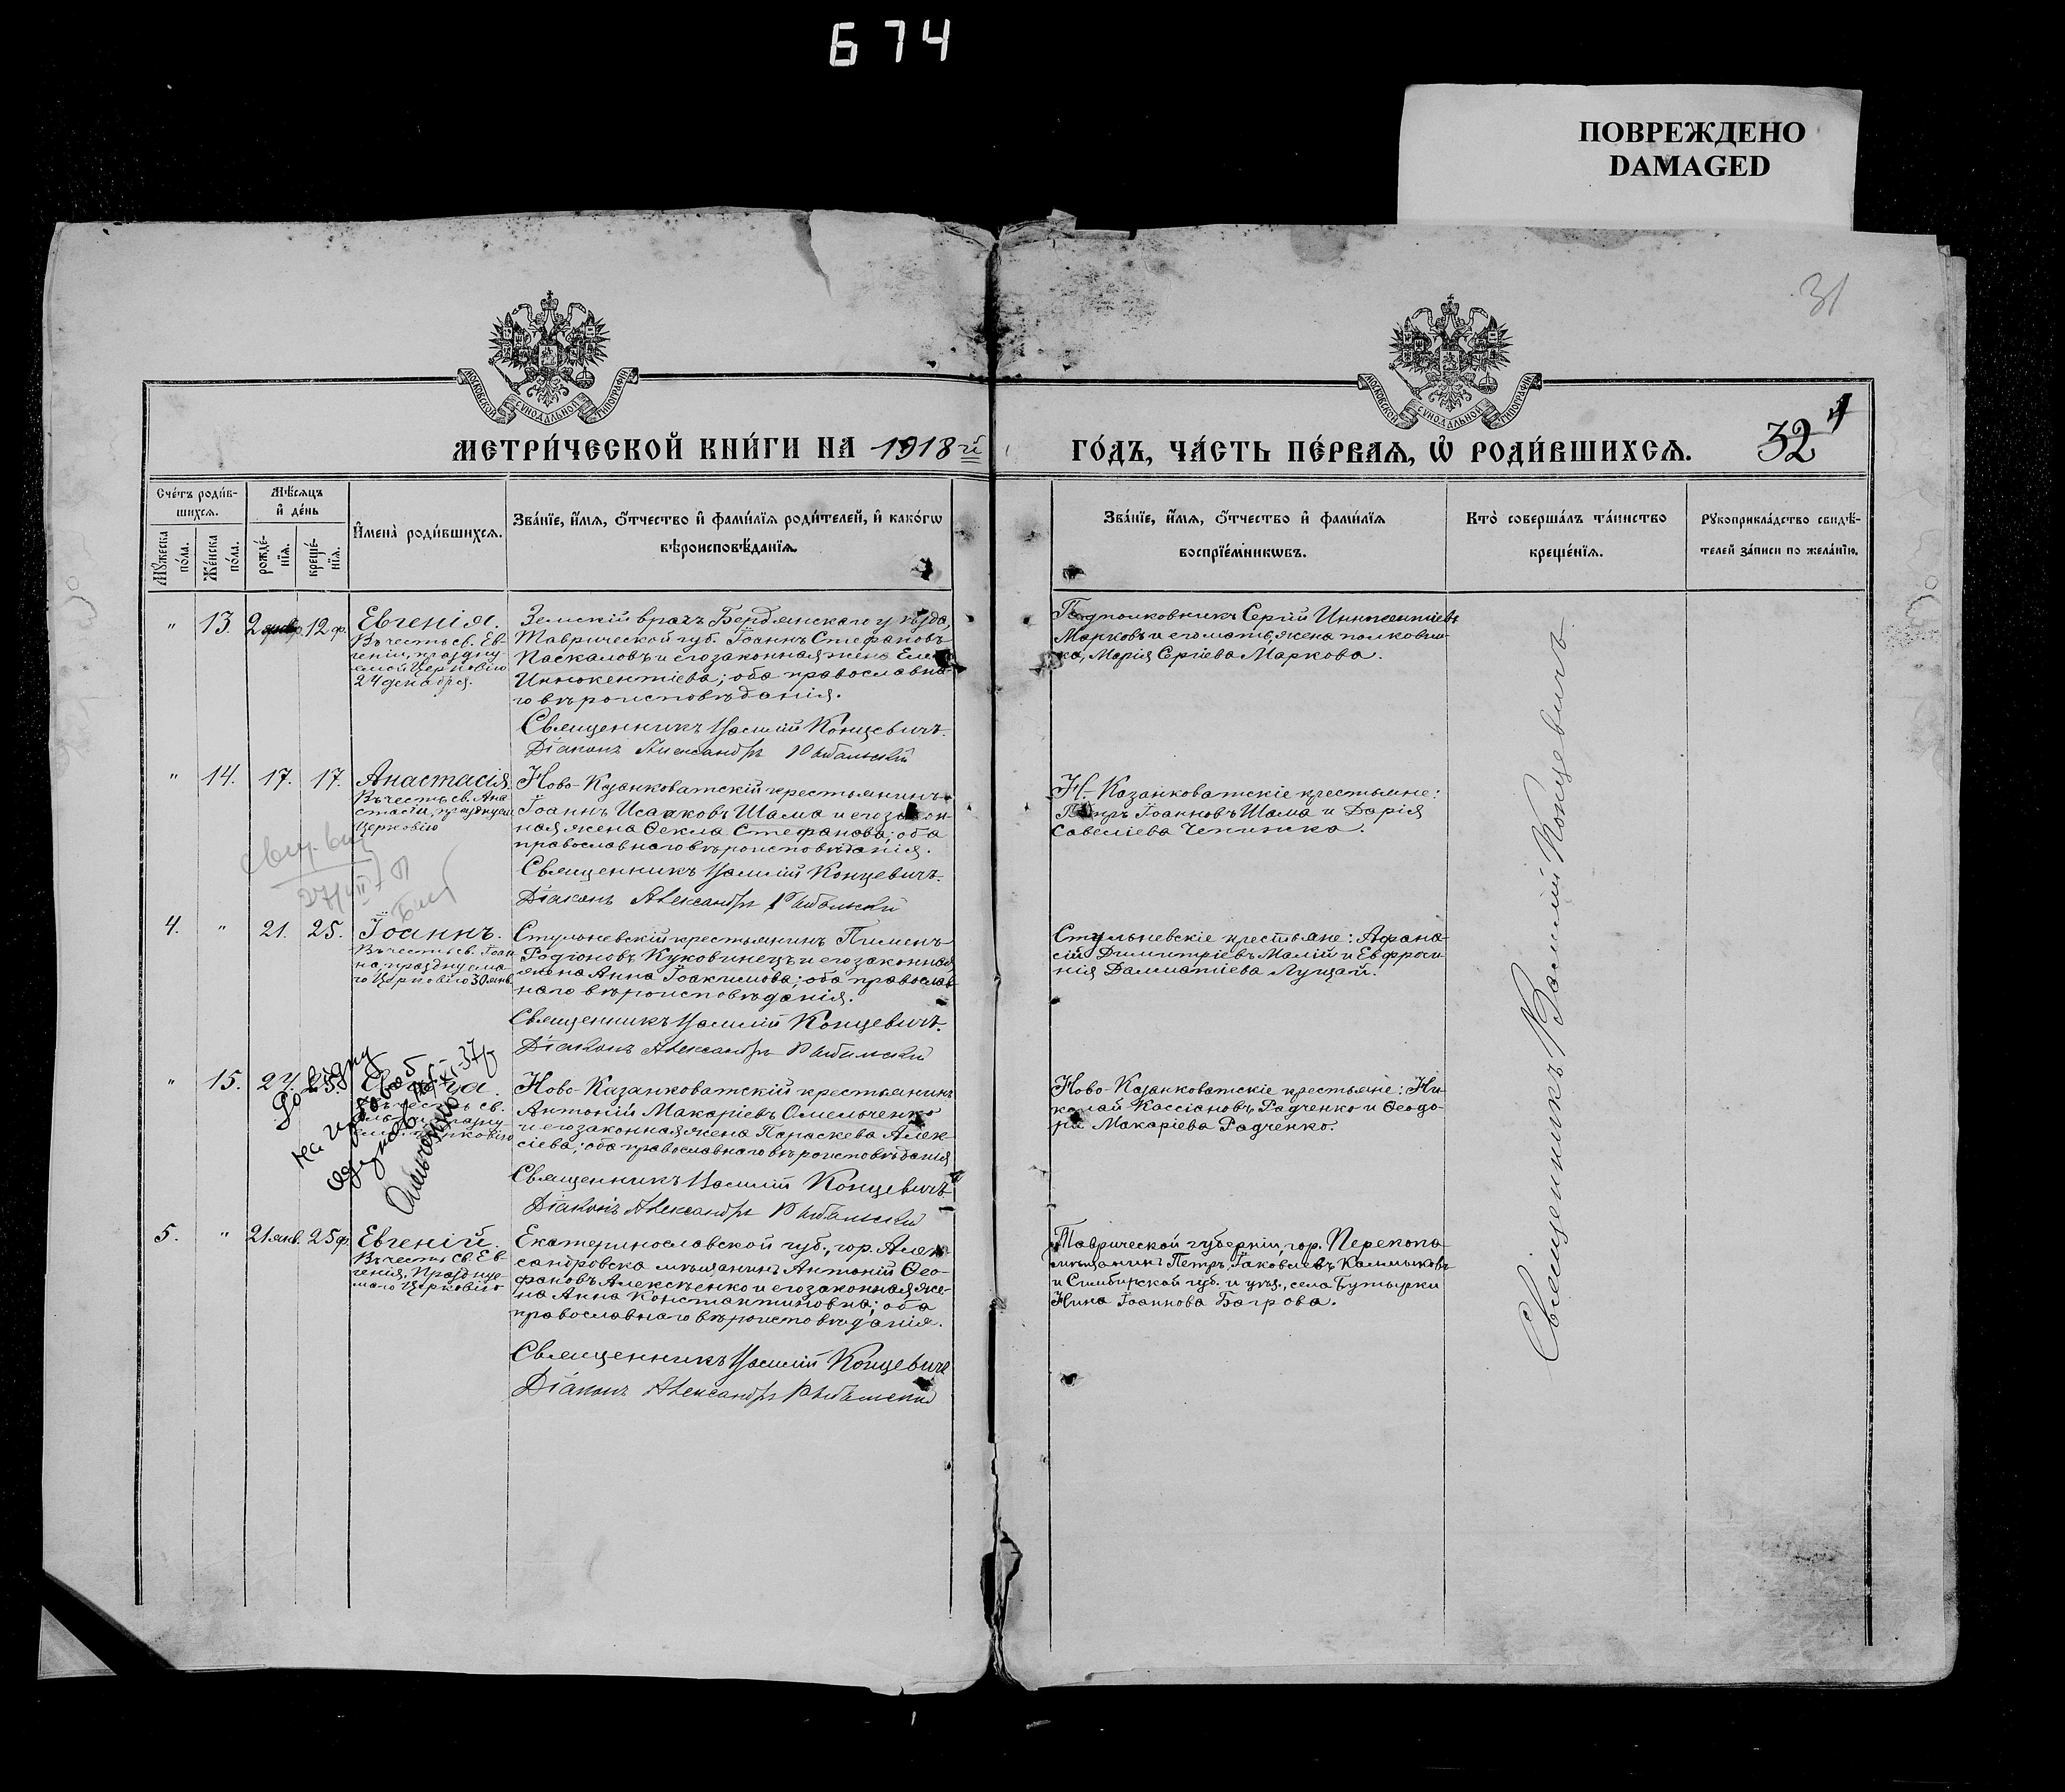 674
ПОВРЕЖДЕНО
DAMAGED
31
МОСКОВСКОЙ СѴНОДАЛЬНОЙ ТИПОГРАФІИ
МОСКОВСКОЙ СѴНОДАЛЬНОЙ ТИПОГРАФІИ
МЕТРИ́ЧЕСКОЙ КНИ́ГИ НА 1918 й
ГО́ДЪ, ЧА́СТЬ ПЕ́РВАѦ, Ѡ҆ РОДИ́ВШИХСѦ.
32
Сче́тъ роди́в-
шихсѧ.
Мѣ́сѧцъ
и҆ де́нь
Мꙋ́жеска
по́ла.
Же́нска
по́ла.
рожде́-
нїѧ.
креще́-
нїѧ.
И҆мена̀ роди́вшихсѧ.
Зва́нїе, и҆́мѧ, ѻ҆́тчество и҆ фамі́лїѧ роди́телей, и҆ како́гѡ
вѣроисповѣ́данїѧ.
Зва́нїе, и҆́мѧ, ѻ҆́тчество и҆ фамі́лїѧ
воспрїе́мникѡвъ.
Кто̀ соверша́лъ та́инство
креще́нїѧ.
Рꙋкоприкла́дство свидѣ́-
телей за́писи по жела́нїю.
" 13. 2 янвр. 12 ф. Евгенія.
Въ честь св. Ев-
геніи, праздну-
емой Церковію
24 декабря.
Земскій врачъ Бердянскаго уѣзда,
Таврической губ. Іоаннъ Стефановъ
Паскаловъ и его законная жена
Иннокентіева; оба православна-
го вѣроисповѣданія.
Священникъ Василій Концевичъ.
Діаконъ Александръ Рыбальскій
Подполковникъ Сергій Иннокентіевъ
Марковъ и его мать, жена полковни-
ка, Марія Сергіева Маркова.
" 14. 17. 17. Анастасія.
Въ честь св. Ана-
стасіи, празднуем.
Церковію
Ново-Казанковатскій крестьянинъ
Іоаннъ Исааковъ Шама и его закон-
ная жена Ѳекла Стефанова; оба
православнаго вѣроисповѣданія.
Священникъ Василій Концевичъ.
Діаконъ Александръ Рыбальскій
Н.-Казанковатскіе крестьяне:
Петръ Іоанновъ Шама и Дарія
Савеліева Чепинска.
4. " 21. 25. Іоаннъ.
Въ честь св. Іоан-
на, праздуема-
го Церковію 30 янв.
Стульневскій крестьянинъ Пименъ
Родіоновъ Куковинецъ и его законная
жена Анна Іоакимова; оба православ-
наго вѣроисповѣданія.
Священникъ Василій Концевичъ.
Діаконъ Александръ Рыбальскій
Стульневскіе крестьяне: Афана-
сій Димитріевъ Малій и Евфроси-
нія Далматіева Луцай.
" 15. 24. 25.
Въ честь св.
Церковію
Ново-Казанковатскій крестьянинъ
Антоній Макаріевъ Омельченко
и его законная жена Параскева Алек-
сіева; оба православнаго вѣроисповѣданія
Священникъ Василій Концевичъ
Діаконъ Александръ Рыбальскій
Ново-Казанковатскіе крестьяне: Ни-
колай Кассіановъ Радченко и Ѳеодо-
ра Макаріева Радченко.
5. " 21 янв. 25 ф. Евгеній.
Въ честь Св. Ев-
генія, Празднуе-
маго Церковію
Екатеринославской губ., гор. Алек-
сандровска мѣщанинъ Антоній Ѳео-
фановъ Алексѣенко и его законная же-
на Анна Константиновна; оба
православнаго вѣроисповѣданія.
Священникъ Василій Концевичъ
Діаконъ Александръ Рыбальскій
Таврической губерніи, гор. Перекопа
мѣщанинъ Петръ Іаковлевъ Калмыковъ
и Симбирской губ. и уѣзд., села Бутырки
Нина Іоаннова Багрова.
Священникъ Василій Концевичъ